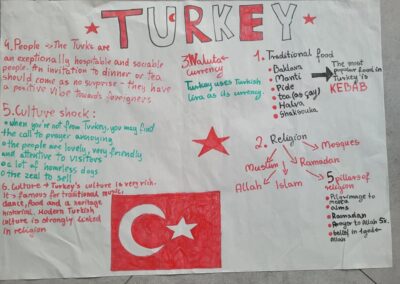 TURKEY
4. People => The Turks are
an exceptionally hospitable and sociable
people. An invitation to dinner or tea
should come as no surprise - they have
a positive vibe towards foreigners
5. Culture shock:
• when you're not from Turkey, you may find
the call to prayer annoying
• the people are lovely, very friendly
and attentive to visitors
• a lot of homeless dogs
• the zeal to sell
6. Culture → Turkey's culture is very rich.
It's famous for traditional music,
dance, food and a heritage
historial. Modern Turkish
culture is strongly linked
in religion
3. Waluta
currency
Turkey uses Turkish
lira as its currency.
1. Traditional food
• Baklava
• Manti
• Pide
• tea (as çay)
• Halva
• Shaksouka
The most
popular food in
Turkey is
KEBAB
2. Religion
Mosques
Muslim
Ramadan
Allah
Islam
5 pillars of
religion
• Pilgrimage to
mecca
• alms
• Ramadian
• Prayer to Allah 5x.
• belief in 1 god =
Allah